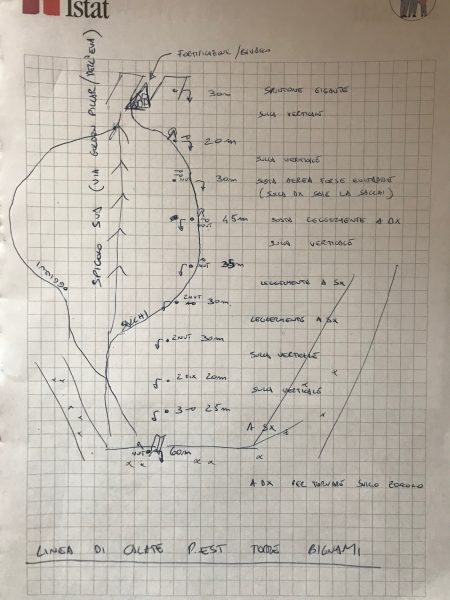 Istat
FORTIFICAZIONI/BIVACCO
30m SPUNTONE GIGANTE
SULLA VERTICALE
20m
SULLA VERTICALE
30m SOSTA AEREA FORSE EVITABILE
(SULLA DX SALE LA SACCHI)
45m SOSTA LEGGERMENTE A DX
SULLA VERTICALE
35m
LEGGERMENTE A SX
2NUT 30m
LEGGERMENTE A SX
2NUT 30m
SULLA VERTICALE
20m
SULLA VERTICALE
25m
A SX
60m
A DX PER TORNARE SULLO ZOCCOLO
SPIGOLO SUD (VIA GOLDEN PILLAR/DELL'EVA)
SACCHI
LINEA DI CALATE P. EST TORRE BIGNAMI